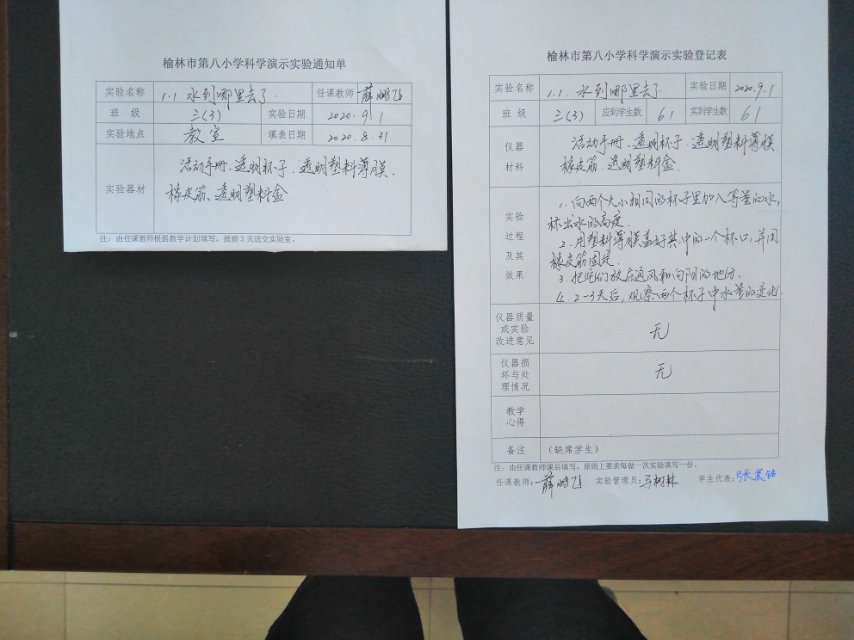 榆林市第八小学科学演示实验通知单
实验名称 1.1 水到哪里去了 任课教师 薛鹏飞
班 级 三(3) 实验日期 2020.9.1
实验地点 教室 填表日期 2020.8.31
实验器材 活动手册、透明杯子、透明塑料薄膜、
橡皮筋、透明塑料盒
注:由任课教师根据教学计划填写,提前3天送交实验室。
榆林市第八小学科学演示实验登记表
实验名称 1.1. 水到哪里去了 实验日期 2020.9.1
班 级 三(3) 应到学生数 61 实到学生数 61
仪器
材料
活动手册、透明杯子、透明塑料薄膜
橡皮筋、透明塑料盒.
实验
过程
及其
效果
1. 向两个大小相同的杯子里加入等量的水,
标出水的高度.
2. 用塑料薄膜盖好其中的一个杯口,并用
橡皮筋固定.
3. 把它们放在通风和向阳的地方.
4. 2-3天后,观察两个杯子中水量的变化.
仪器质量
或实验
改进意见
无
仪器损
坏与处
理情况
无
教学
心得
备注 (缺席学生)
注:由任课教师课后填写,原则上要求每做一次实验填写一份。
任课教师:薛鹏飞 实验管理员:马树林 学生代表:张